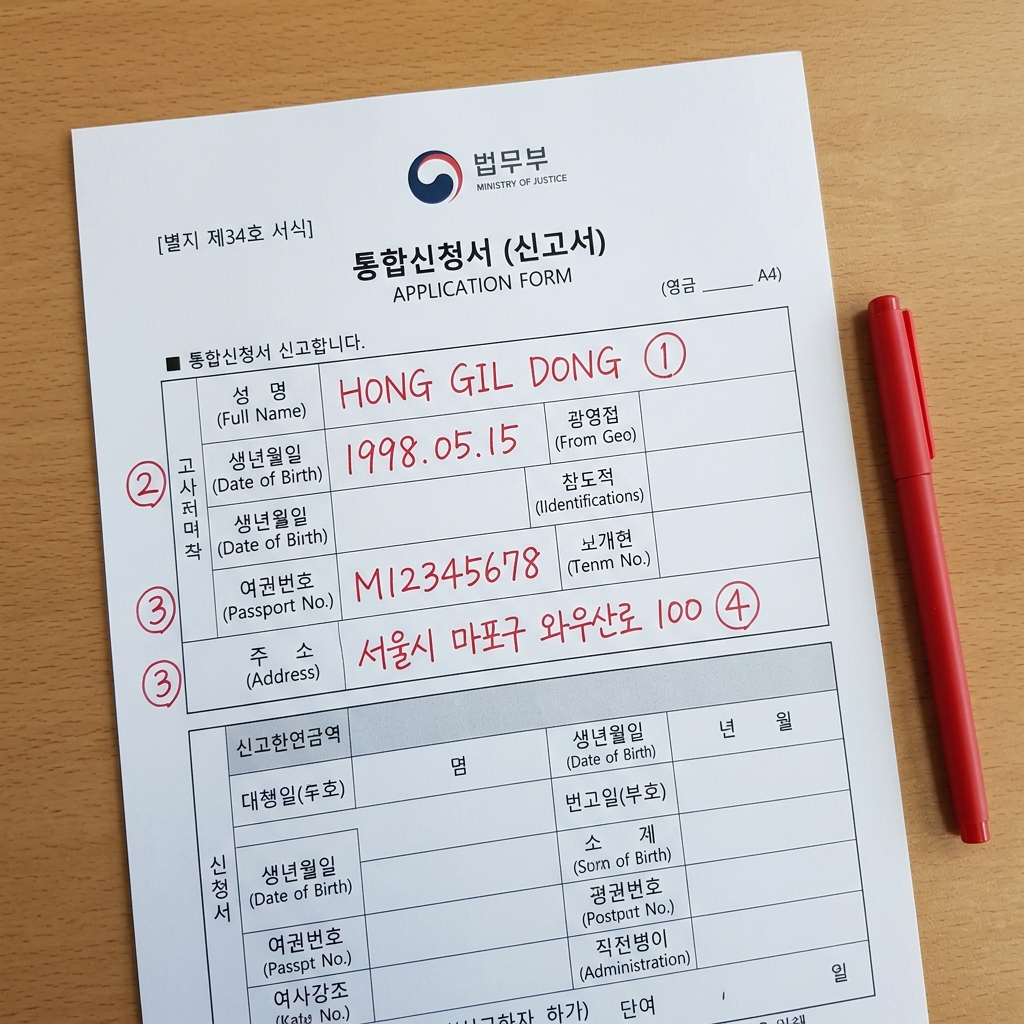 법무부
MINISTRY OF JUSTICE
[별지 제34호 서식]
통합신청서 (신고서)
APPLICATION FORM
(영금 ______ A4)
■ 통합신청서 신고합니다.
성 명 HONG GIL DONG ①
(Full Name)
② 생년월일 1998.05.15 광영접
(Date of Birth) (From Geo)
생년월일 참도적
(Date of Birth) (IIdentifications)
③ 여권번호 M12345678 보개현
(Passport No.) (Tenm No.)
③ 주 소 서울시 마포구 와우산로 100 ④
(Address)
신고한연금역
생년월일 년 월
(Date of Birth)
명
번고일(부호)
신청서
생년월일
(Date of Birth)
소 계
of Birth)
여권번호
(Passpt No.)
평권번호
No.)
직전병이
(Administration)
여사강조
No.)
일
하가) 단여